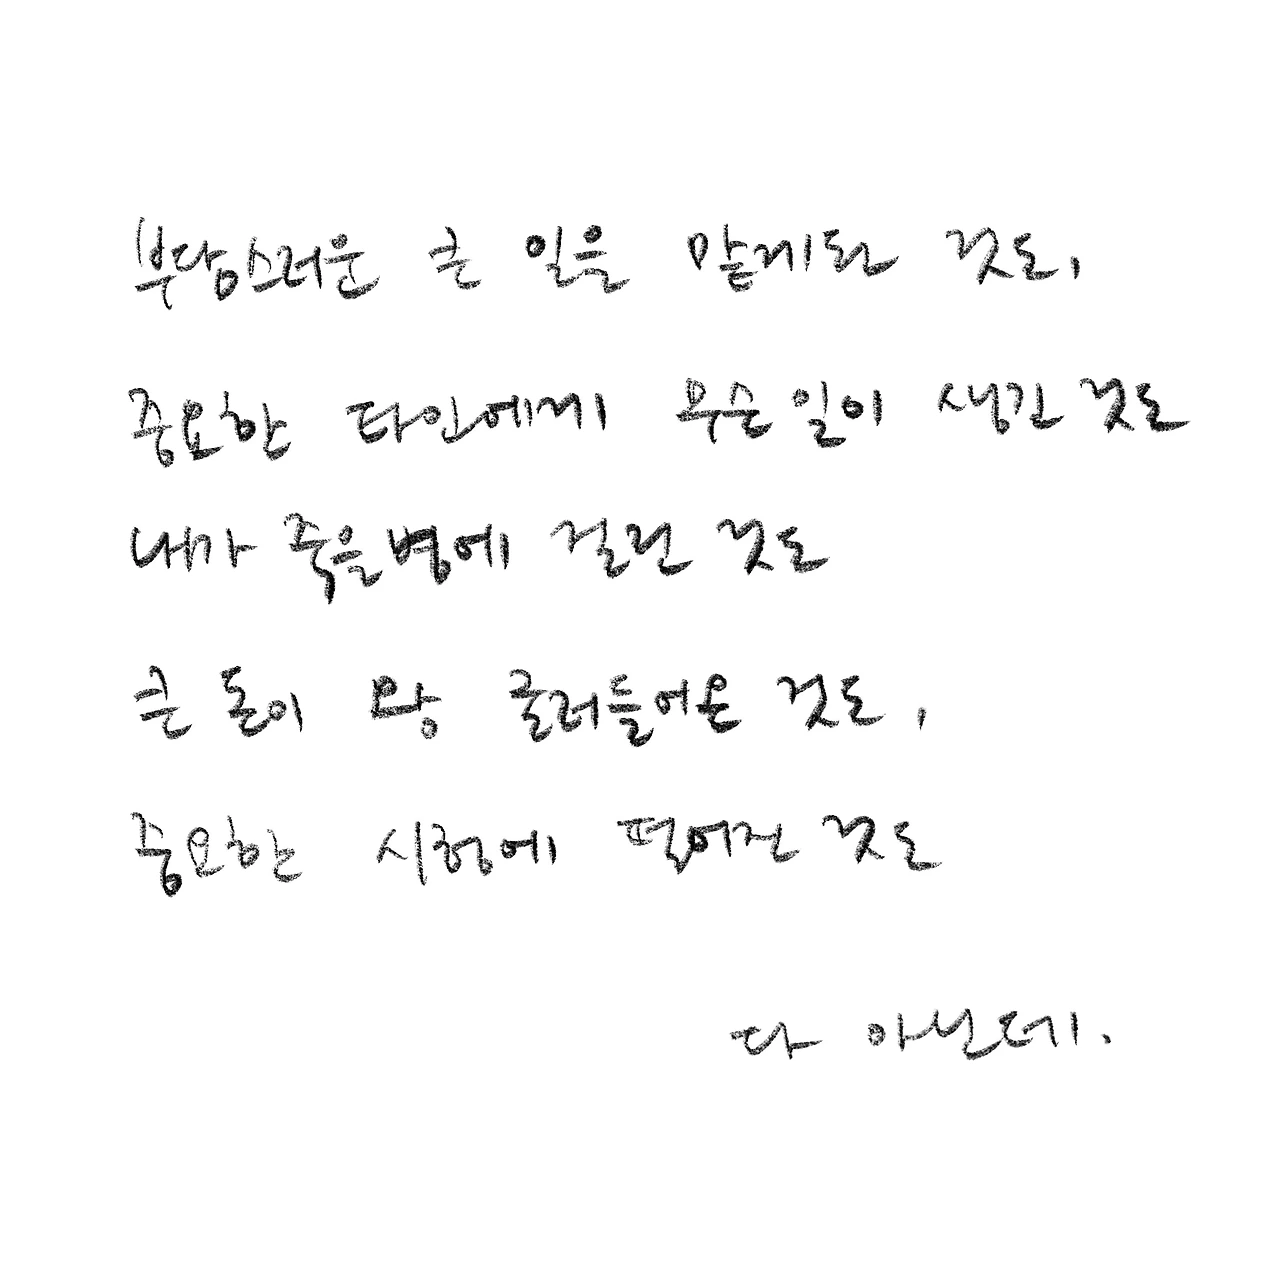 부담스러운 큰 일을 맡게된 것도,
중요한 타인에게 무슨일이 생긴 것도
내가 죽을병에 걸린 것도
큰 돈이 왕 굴러들어온 것도,
중요한 시험에 떨어진 것도
다 아닌데.